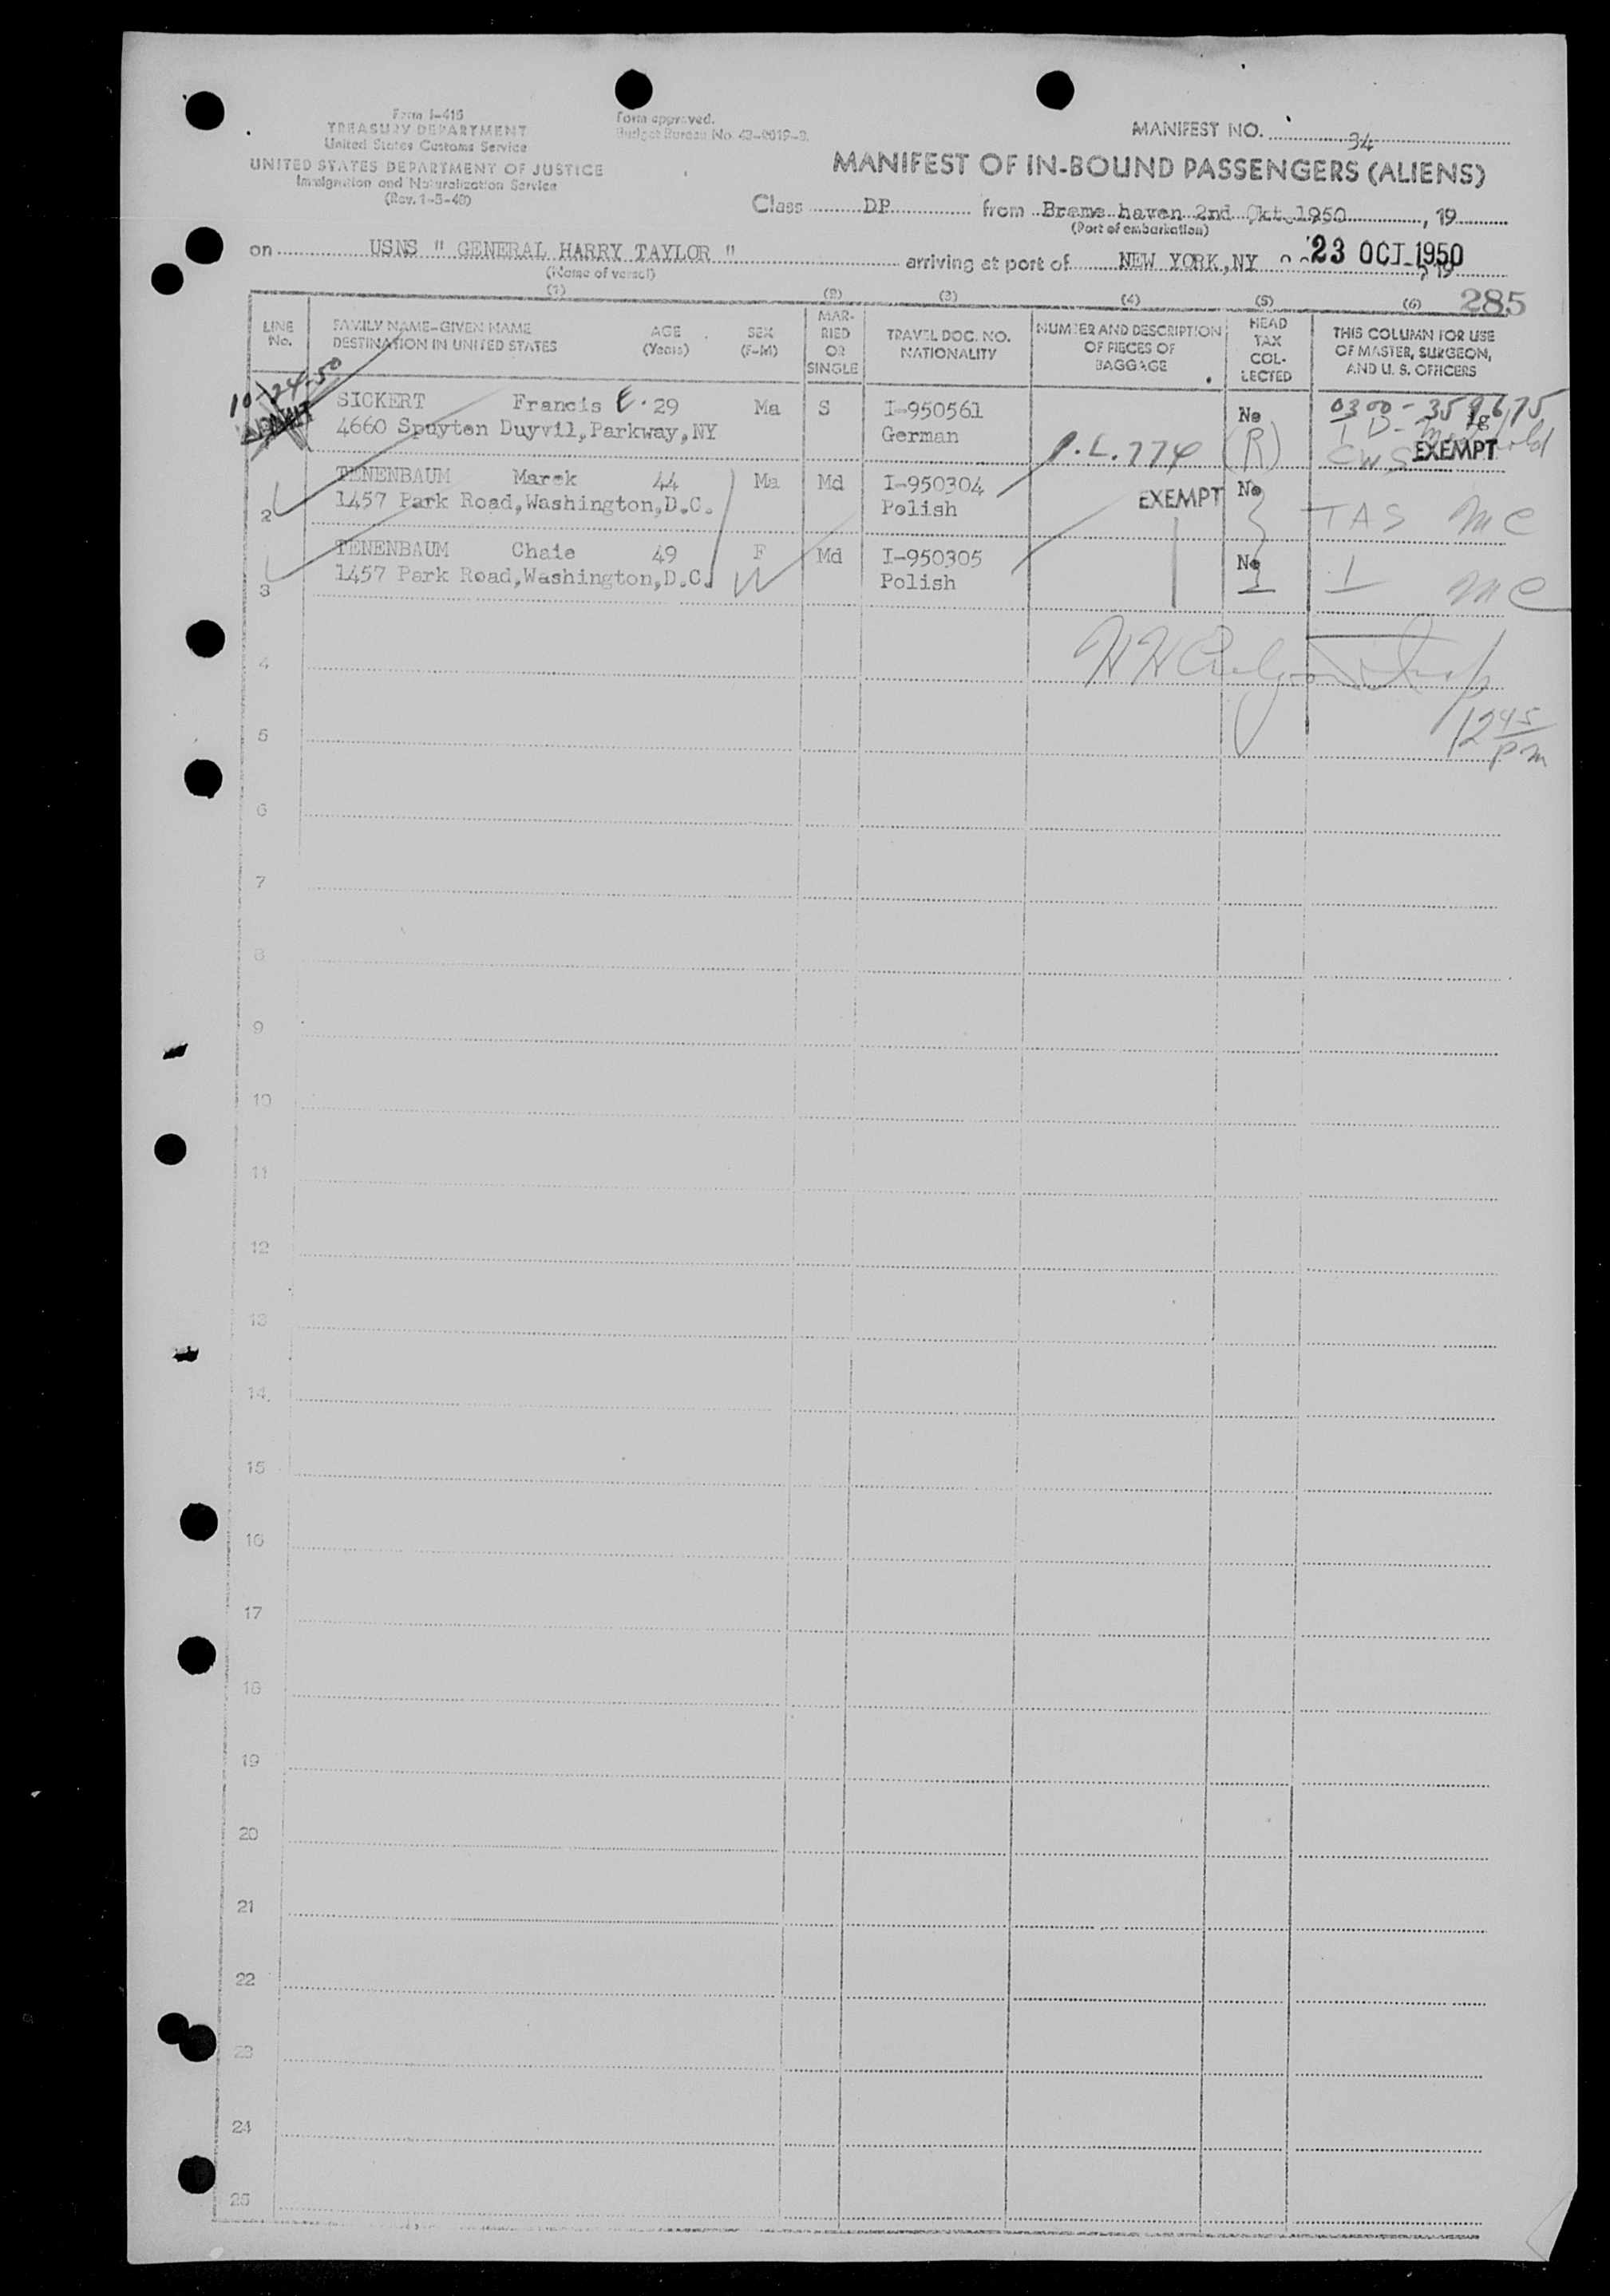 Form I-415
TREASURY DEPARTMENT
United States Customs Service
UNITED STATES DEPARTMENT OF JUSTICE
Immigration and Naturalization Service
(Rev. 1-5-48)
Form approved.
Budget Bureau No. 43-R019-3.
MANIFEST NO. 34
MANIFEST OF IN-BOUND PASSENGERS (ALIENS)
Class DP from Breme haven 2nd Okt. 1950, 19
(Port of embarkation)
on USNS " GENERAL HARRY TAYLOR " arriving at port of NEW YORK,NY 23 OCT 1950, 19
(Name of vessel)
285
(1) (2) (3) (4) (5) (6)
LINE No.
FAMILY NAME-GIVEN NAME
DESTINATION IN UNITED STATES
AGE (Years)
SEX (F-M)
MAR-RIED OR SINGLE
TRAVEL DOC. NO. NATIONALITY
NUMBER AND DESCRIPTION OF PIECES OF BAGGAGE
HEAD TAX COL-LECTED
THIS COLUMN FOR USE OF MASTER, SURGEON, AND U. S. OFFICERS
10-24-50
ADMIT
SICKERT Francis E. 29 Ma S I-950561 No 0300-359675
4660 Spuyten Duyvil,Parkway,NY German P.L.774 (R) CWS EXEMPT
TENENBAUM Marek 44 Ma Md I-950304 EXEMPT No
2 1457 Park Road,Washington,D.C. Polish TAS MC
TENENBAUM Chaie 49 F Md I-950305 No
3 1457 Park Road,Washington,D.C. Polish MC
4
5
12 45 pm
6
7
8
9
10
11
12
13
14
15
16
17
18
19
20
21
22
23
24
25